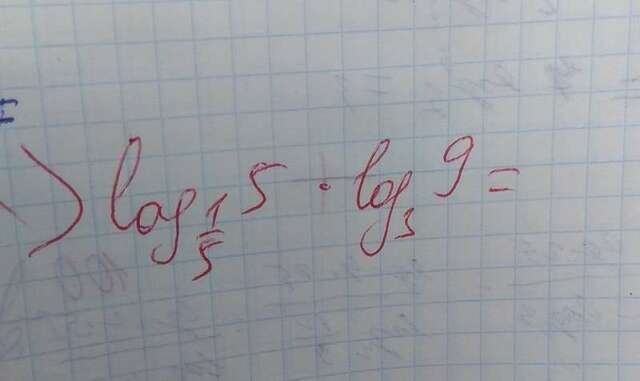 ) log_{1/5} 5 · log_3 9 =